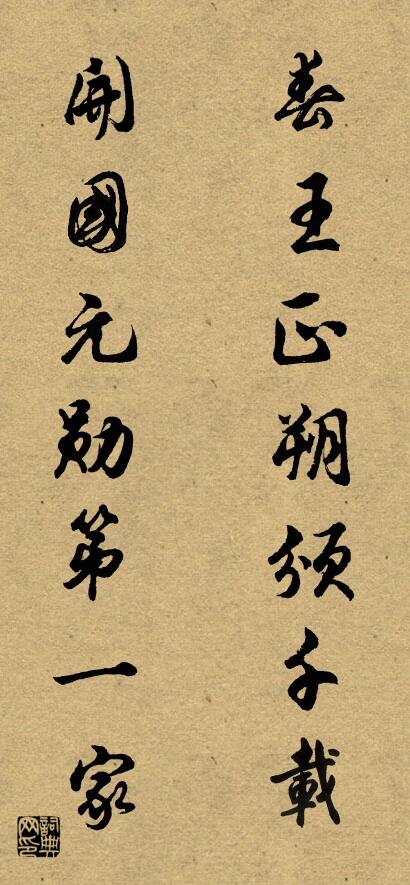 春王正朔頒千載
開國元勛第一家
詞典
网印